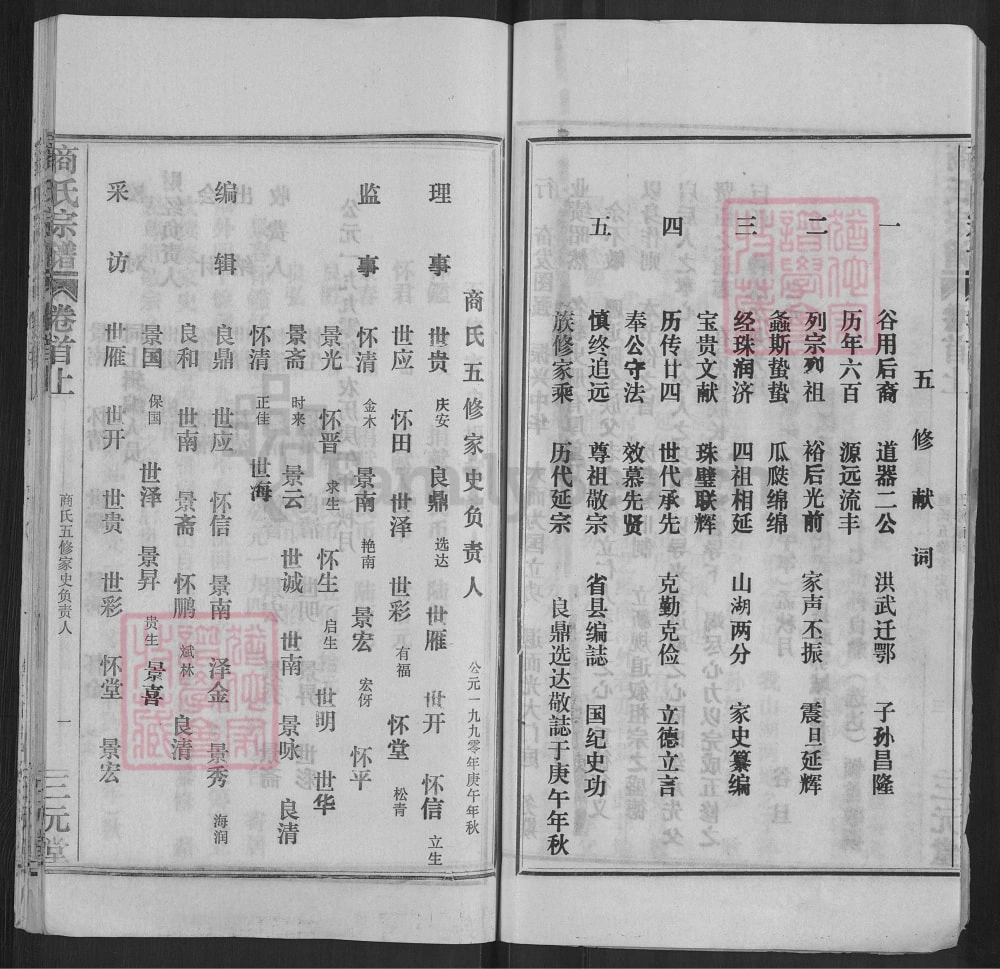 五修献词
一
谷用后裔 道器二公 洪武迁鄂 子孙昌隆
历年六百 源远流丰
二
列宗列祖 裕后光前 家声丕振 震旦延辉
螽斯蛰蛰 瓜瓞绵绵
三
经珠润济 四祖相延 山湖两分 家史纂编
宝贵文献 珠璧联辉
四
历传廿四 世代承先 克勤克俭 立德立言
奉公守法 效慕先贤
五
慎终追远 尊祖敬宗 省县编誌 国纪史功
族修家乘 历代延宗 良鼎选达敬誌于庚午年秋
商氏五修家史负责人 公元一九九零年庚午年秋
理事 世贵 庆安 良鼎 选达 世雁 世开 怀信 立生
世应 怀田 世泽 世彩 有福 怀堂 松青
监事 怀清 金木 景南 艳南 景宏 宏伢 怀平
景光 怀晋 求生 怀生 启生 世明 世华
景斋 时来 景云 世诚 世南 景咏 良清
怀清 正佳 世海
编辑 良鼎 世应 怀信 景南 泽金 景秀 海润
良和 世南 景斋 怀鹏 斌林 良清
景国 保国 世泽 景昇 贵生 景喜
采访 世雁 世开 世贵 世彩 怀堂 景宏
商氏宗谱 卷首上 商氏五修家史负责人 一 三元堂